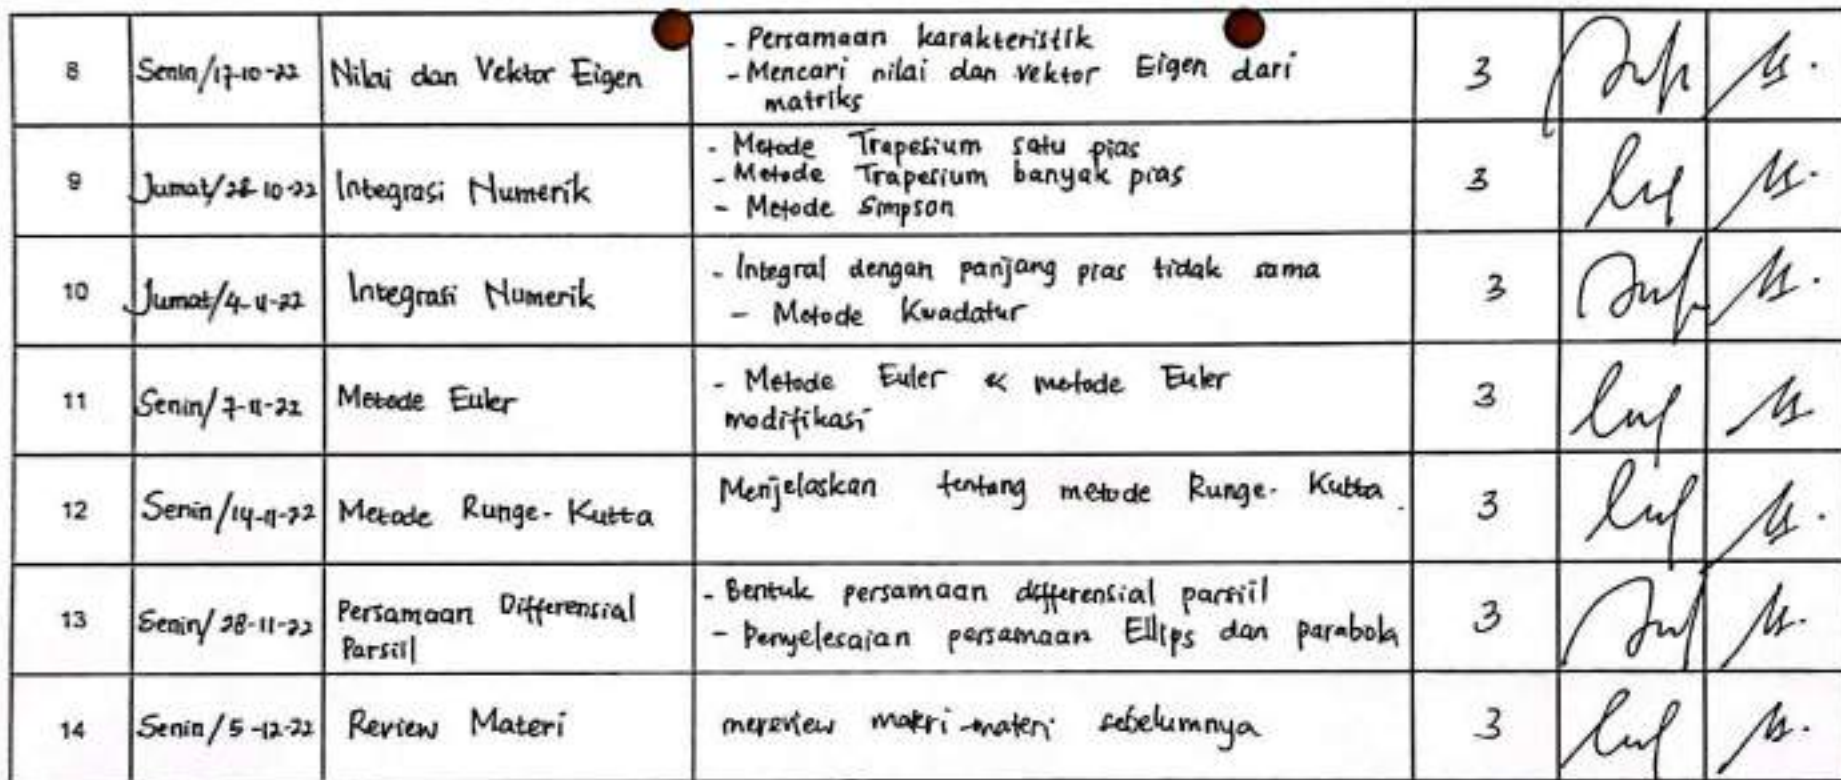 8 Senin/17-10-22 Nilai dan Vektor Eigen - Persamaan karakteristik 3
- Mencari nilai dan vektor Eigen dari
matriks
9 Jumat/28-10-22 Integrasi Numerik - Metode Trapesium satu pias 3
- Metode Trapesium banyak pias
- Metode Simpson
10 Jumat/4-11-22 Integrasi Numerik - Integral dengan panjang pias tidak sama 3
- Metode Kwadatur
11 Senin/7-11-22 Metode Euler - Metode Euler & metode Euler 3
modifikasi
12 Senin/14-11-22 Metode Runge-Kutta Menjelaskan tentang metode Runge-Kutta. 3
13 Senin/28-11-22 Persamaan Differensial - Bentuk persamaan differensial parsiil 3
Parsiil - Penyelesaian persamaan Ellips dan parabola
14 Senin/5-12-22 Review Materi mereview materi-materi sebelumnya 3